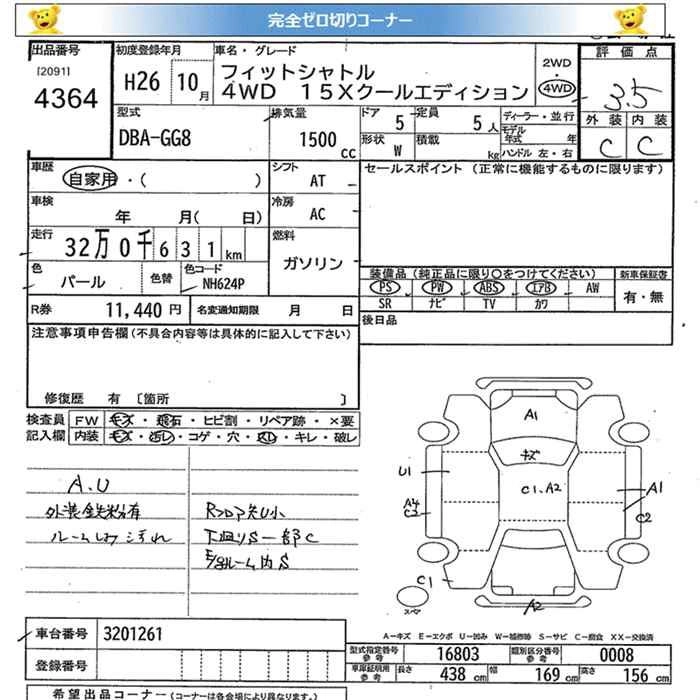 完全ゼロ切りコーナー
出品番号 初度登録年月 車名・グレード 評価点
[2091] 4364
H26 10月
フィットシャトル
4WD 15Xクールエディション
2WD
4WD
3.5
外装 内装
C C
型式 排気量 ドア 定員 ディーラー・並行
DBA-GG8 1500cc 5 5人
モデル年式 年
形状 W 積載 kg ハンドル 左・右
車歴 自家用・( ) シフト AT
セールスポイント (正常に機能するものに限ります)
車検 年 月( 日) 冷房 AC
走行 32万0千631km 燃料 ガソリン
色 パール 色替 色コード NH624P
装備品(純正品に限り○をつけてください) 新車保証書
PS PW ABS エアB AW 有・無
SR ナビ TV カワ
R券 11,440円 名変通知期限 月 日
後日品
注意事項申告欄(不具合内容等は具体的に記入して下さい)
修復歴 有 [箇所 ]
検査員 FW キズ・飛石・ヒビ割・リペア跡・×要
記入欄 内装 キズ・汚レ・コゲ・穴・スレ・キレ・破レ
A.U
外装鉄粉有
Rフロア矢U小
下廻りS一部C
A1
キズ
C1.A2
U1
A4
C3
A1
C2
C1
スペア
A2
A-キズ E-エクボ U-凹み W-補修跡 S-サビ C-腐食 XX-交換済
車台番号 3201261
登録番号
型式指定番号 参考 16803 類別区分番号 参考 0008
車庫証明用 参考 長さ 438cm 幅 169cm 高さ 156cm
希望出品コーナー(コーナーは各会場により異なります。)